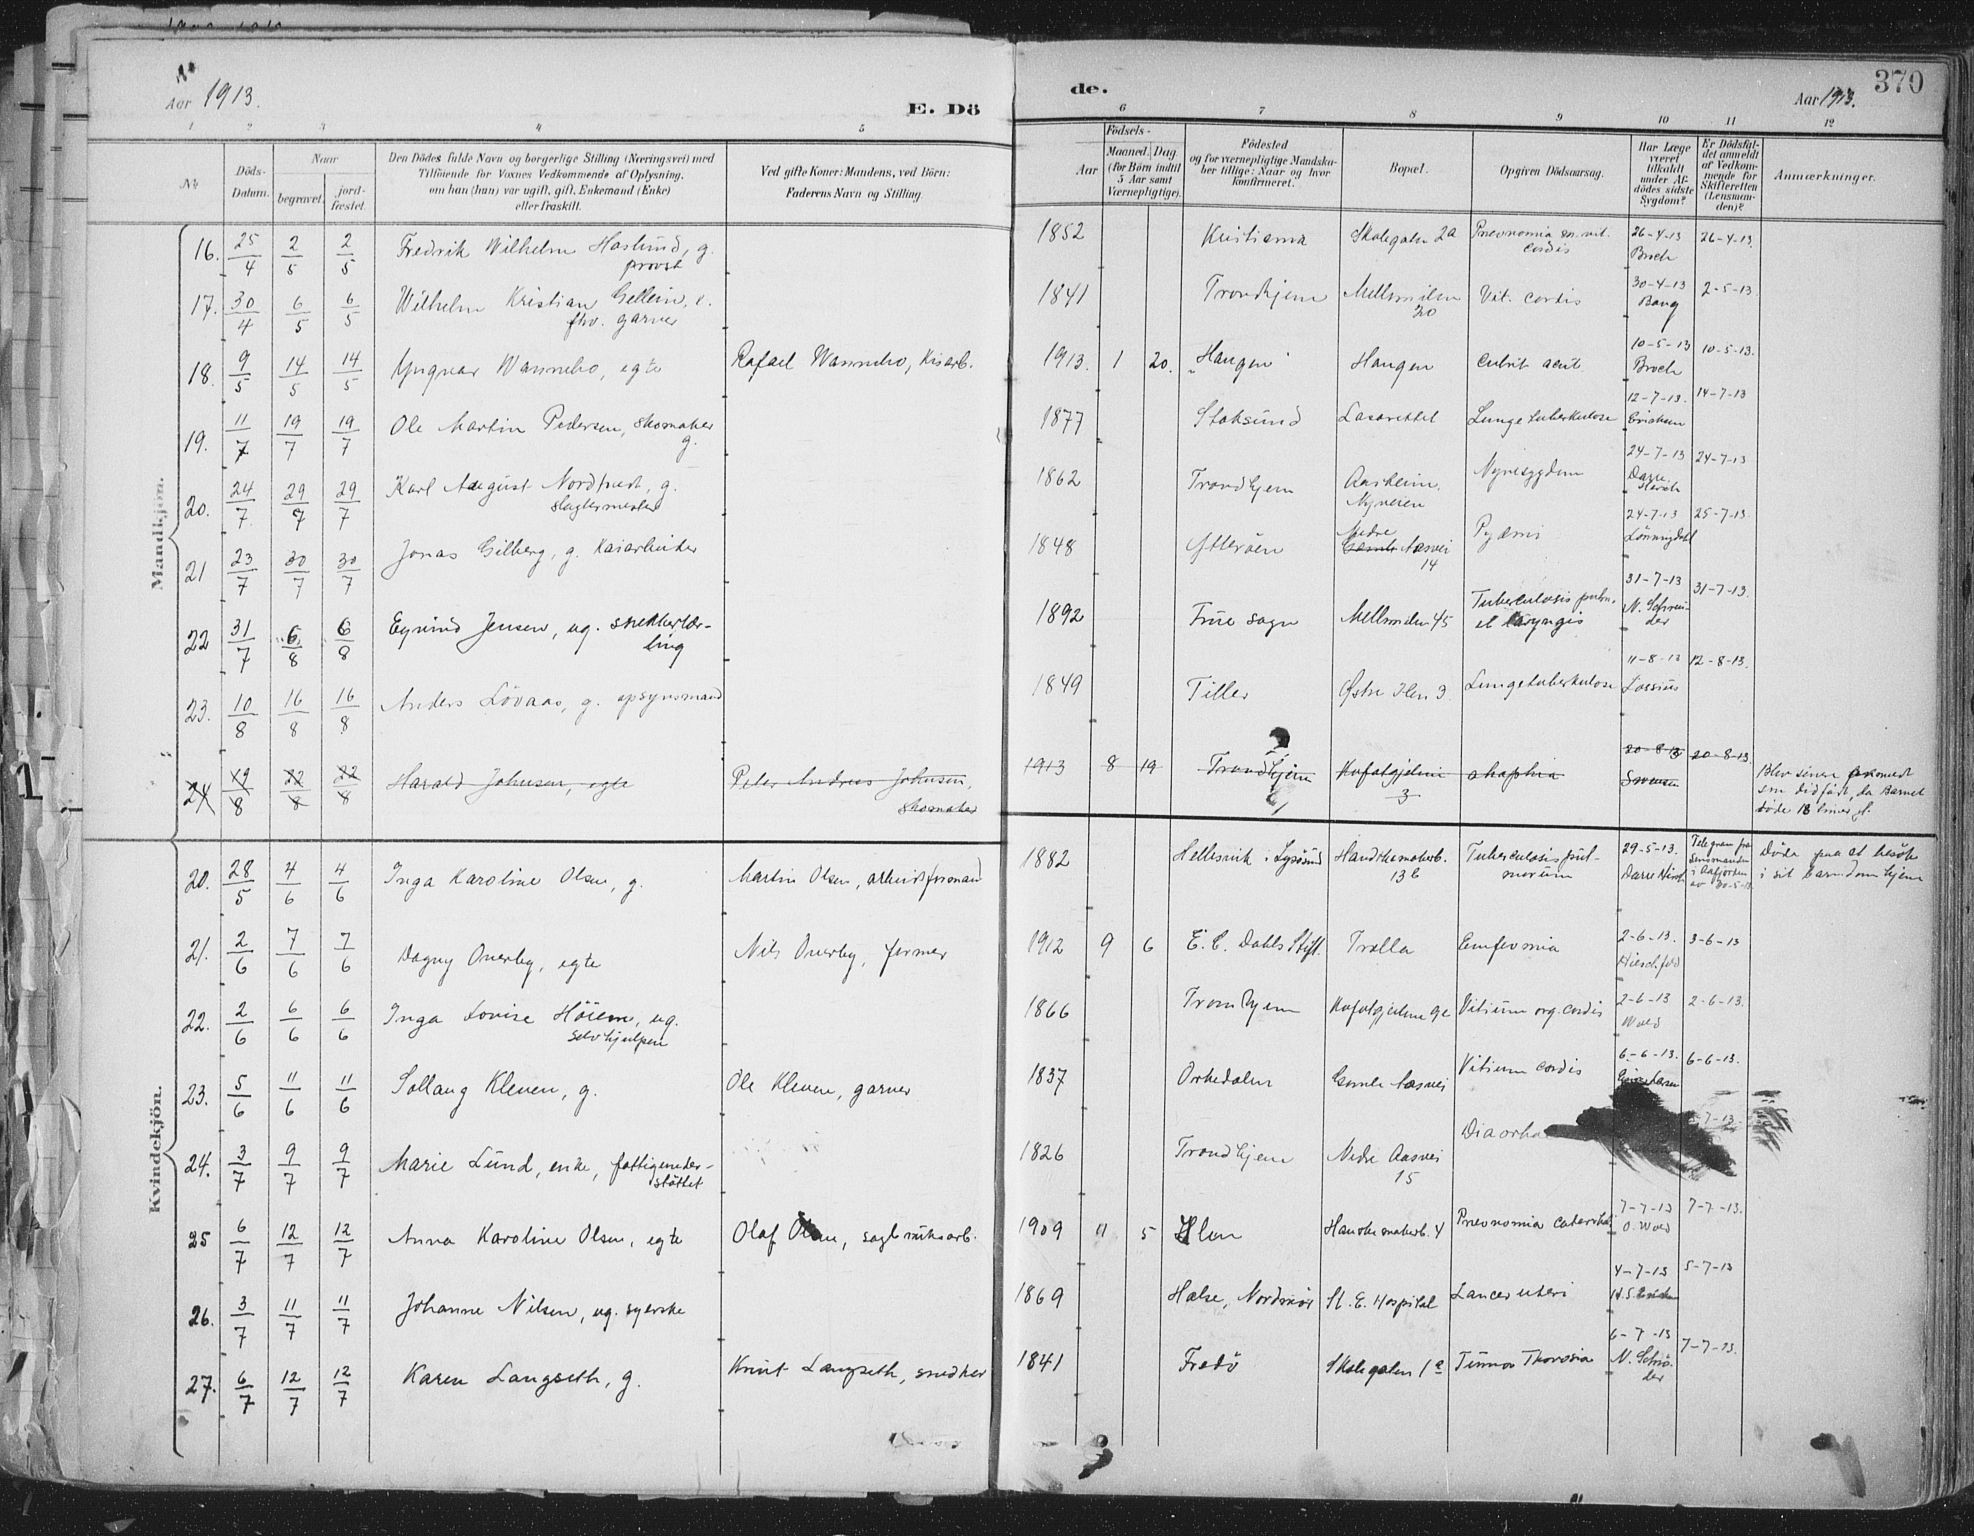 Aar 1913.
E. Dö
de.
Aar 1913.
370
1 2 3 4 5 6 7 8 9 10 11 12
Nr.
Döds-
Datum.
Naar
begravet.
jord-
fæstet.
Den Dödes fulde Navn og borgerlige Stilling (Næringsvei) med
Tilföiende for Voxnes Vedkommende af Oplysning,
om han (hun) var ugift, gift, Enkemand (Enke)
eller fraskilt.
Ved gifte Koner: Mandens, ved Börn:
Faderens Navn og Stilling.
Födsels-
Aar
Maaned. Dag.
(for Börn indtil
5 Aar samt
Værnepligtige).
Födested
og for værnepligtige Mandska-
ber tillige: Naar og hvor
konfirmeret.
Bopæl.
Opgiven Dödsaarsag.
Har Læge
været
tilkaldt
under Af-
dödes sidste
Sygdom?
Er Dödsfal-
det anmeldt
af Vedkom-
mende for
Skifteretten
(Lensman-
den)?
Anmærkninger.
Mandkjön.
16. 25/4 2/5 2/5 Fredrik Wilhelm Haslund, g. provst 1852 Kristiania Skolegaten 2a Pneonomia vit. cordis 26-4-13 Broch 26-4-13.
17. 30/4 6/5 6/5 Wilhelm Kristian Gellein, e. fhv. garver 1841 Trondhjem Mellemilen 20 Vit. cordis 30-4-13 Bang 2-5-13
18. 9/5 14/5 14/5 Yngvar Wannebo, egte Rafael Wannebo, Kisarb. 1913. 1 20. Haugen Haugen acut. 10-5-13 Broch 10-5-13.
19. 11/7 19/7 19/7 Ole Martin Pedersen, skomaker g. 1877 Stoksund Lasarettet Lungetuberkulose 12-7-13. Erichsen 14-7-13
20. 24/7 29/7 29/7 Karl August g. slagtermester 1862 Trondhjem Aasheim, Nyveien Nyresygdom 24-7-13 24-7-13
21 23/7 30/7 30/7 Jonas Gilberg, g. Kaiarbeider 1848 Ytteröen Nedre Aasvei 14 Pyæmi 24-7-13 25-7-13.
22 31/7 6/8 6/8 Eyvind Jensen, ug. snekkerlær-
ling 1892 Frue sogn Mellemilen 45 Tuberculosis pulm. et laryngis 31-7-13 N. Schröi-
der 31-7-13.
23. 10/8 16/8 16/8 Anders Lövaas, g. opsynsmand 1849 Tiller Østre Ilen 3 Lungetuberkulose 11-8-13 Lossius 12-8-13.
24 19/8 22/8 22/8 Harald Johnsen, egte Peter Andreas Johnsen, skomaker 1913 8 19 Trondhjem 3 20-8-13 20-8-13.
Blev senere
som dödfödt, da Barnet
döde 18 timer
Kvindekjön.
20. 28/5 4/6 4/6 Inga Karoline Olsen, g. Martin Olsen, arbeidsformand 1882 Hellesvik i Lysösund Handskemakerb. 13b Tuberculosis pul-
monum 29-5-13. Telegram fra Lensmanden i Aafjorden av 30-5-13 Döde paa et besök
i sit barndomshjem
21. 2/6 7/6 7/6 Dagny Overby, egte Nils Overby, former 1912 9 6 E. C. Dahls Stift. Trolla 2-6-13. 3-6-13
22. 2/6 6/6 6/6 Inga Lovise Höiem, ug. selvhjulpen 1866 Tromhjem Vitium org. cordis 2-6-13 Wold 2-6-13.
23. 5/6 11/6 11/6 Sollaug Kleven, g. Ole Kleven, garver 1837 Orkedalen Gamle Aasvei Vitium cordis 6-6-13. 6-6-13.
24. 3/7 9/7 9/7 Marie Lund, enke, fattigunder-
støttet 1826 Trondhjem Nedre Aasvei 15 -7-13
25 6/7 12/7 12/7 Anna Karoline Olsen, egte Olaf Olsen, sagbruksarb. 1909 11 5 Ilen Hanskemakerb. 4 Pneonomia 7-7-13 O. Wold 7-7-13.
26. 3/7 11/7 11/7 Johanne Nilsen, ug. syerske 1869 Halse, Nordmör St. E. Hospital Cancer uteri 4-7-13 5-7-13
27. 6/7 12/7 12/7 Karen Langseth, g. Knut Langseth, snedker 1841 Fredö Skolegaten 1a 6-7-13 N. Schrö-
der 7-7-13.